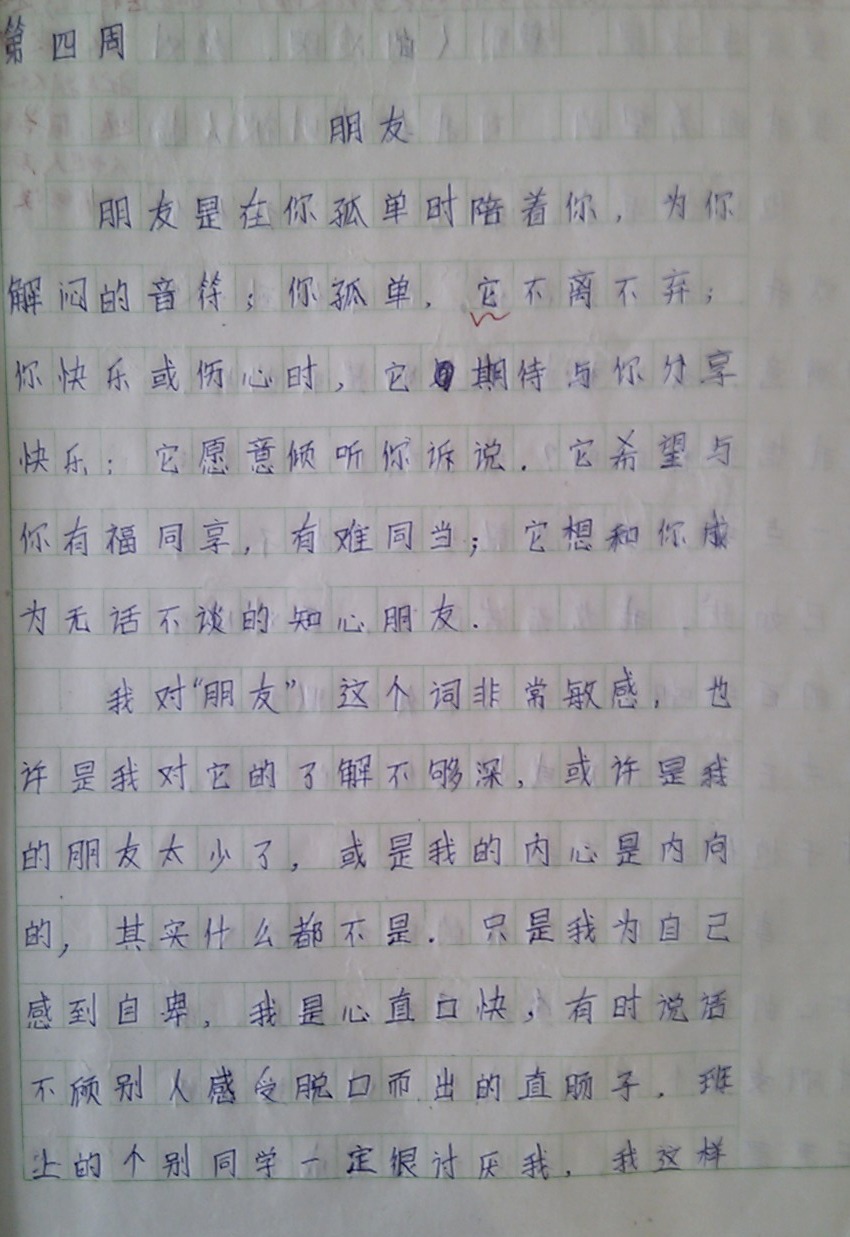 第四周
朋友
朋友是在你孤单时陪着你，为你
解闷的音符；你孤单，它不离不弃；
你快乐或伤心时，它期待与你分享
快乐；它愿意倾听你诉说．它希望与
你有福同享，有难同当；它想和你成
为无话不谈的知心朋友．
我对“朋友”这个词非常敏感，也
许是我对它的了解不够深，或许是我
的朋友太少了，或是我的内心是内向
的，其实什么都不是．只是我为自己
感到自卑，我是心直口快，有时说话
不顾别人感受脱口而出的直肠子．班
上的个别同学一定很讨厌我，我这样